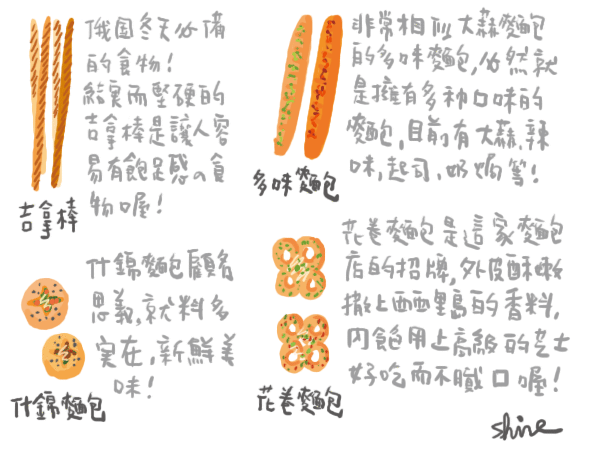 俄国冬天必備
的食物!
結實而堅硬的
吉拿棒是讓人容
易有飽足感の食
物喔!
吉拿棒
非常相似大蒜麵包
的多味麵包,必然就
是擁有多种口味的
麵包,目前有大蒜、辣
味,起司、奶焗等!
多味麵包
什錦麵包顧名
思義,就料多
實在,新鮮美
味!
什錦麵包
花卷麵包是這家麵包
店的招牌,外皮酥嫩
撒上西西里島的香料,
內飽用上高級的芝士
好吃而不膩口喔!
花卷麵包
Shine